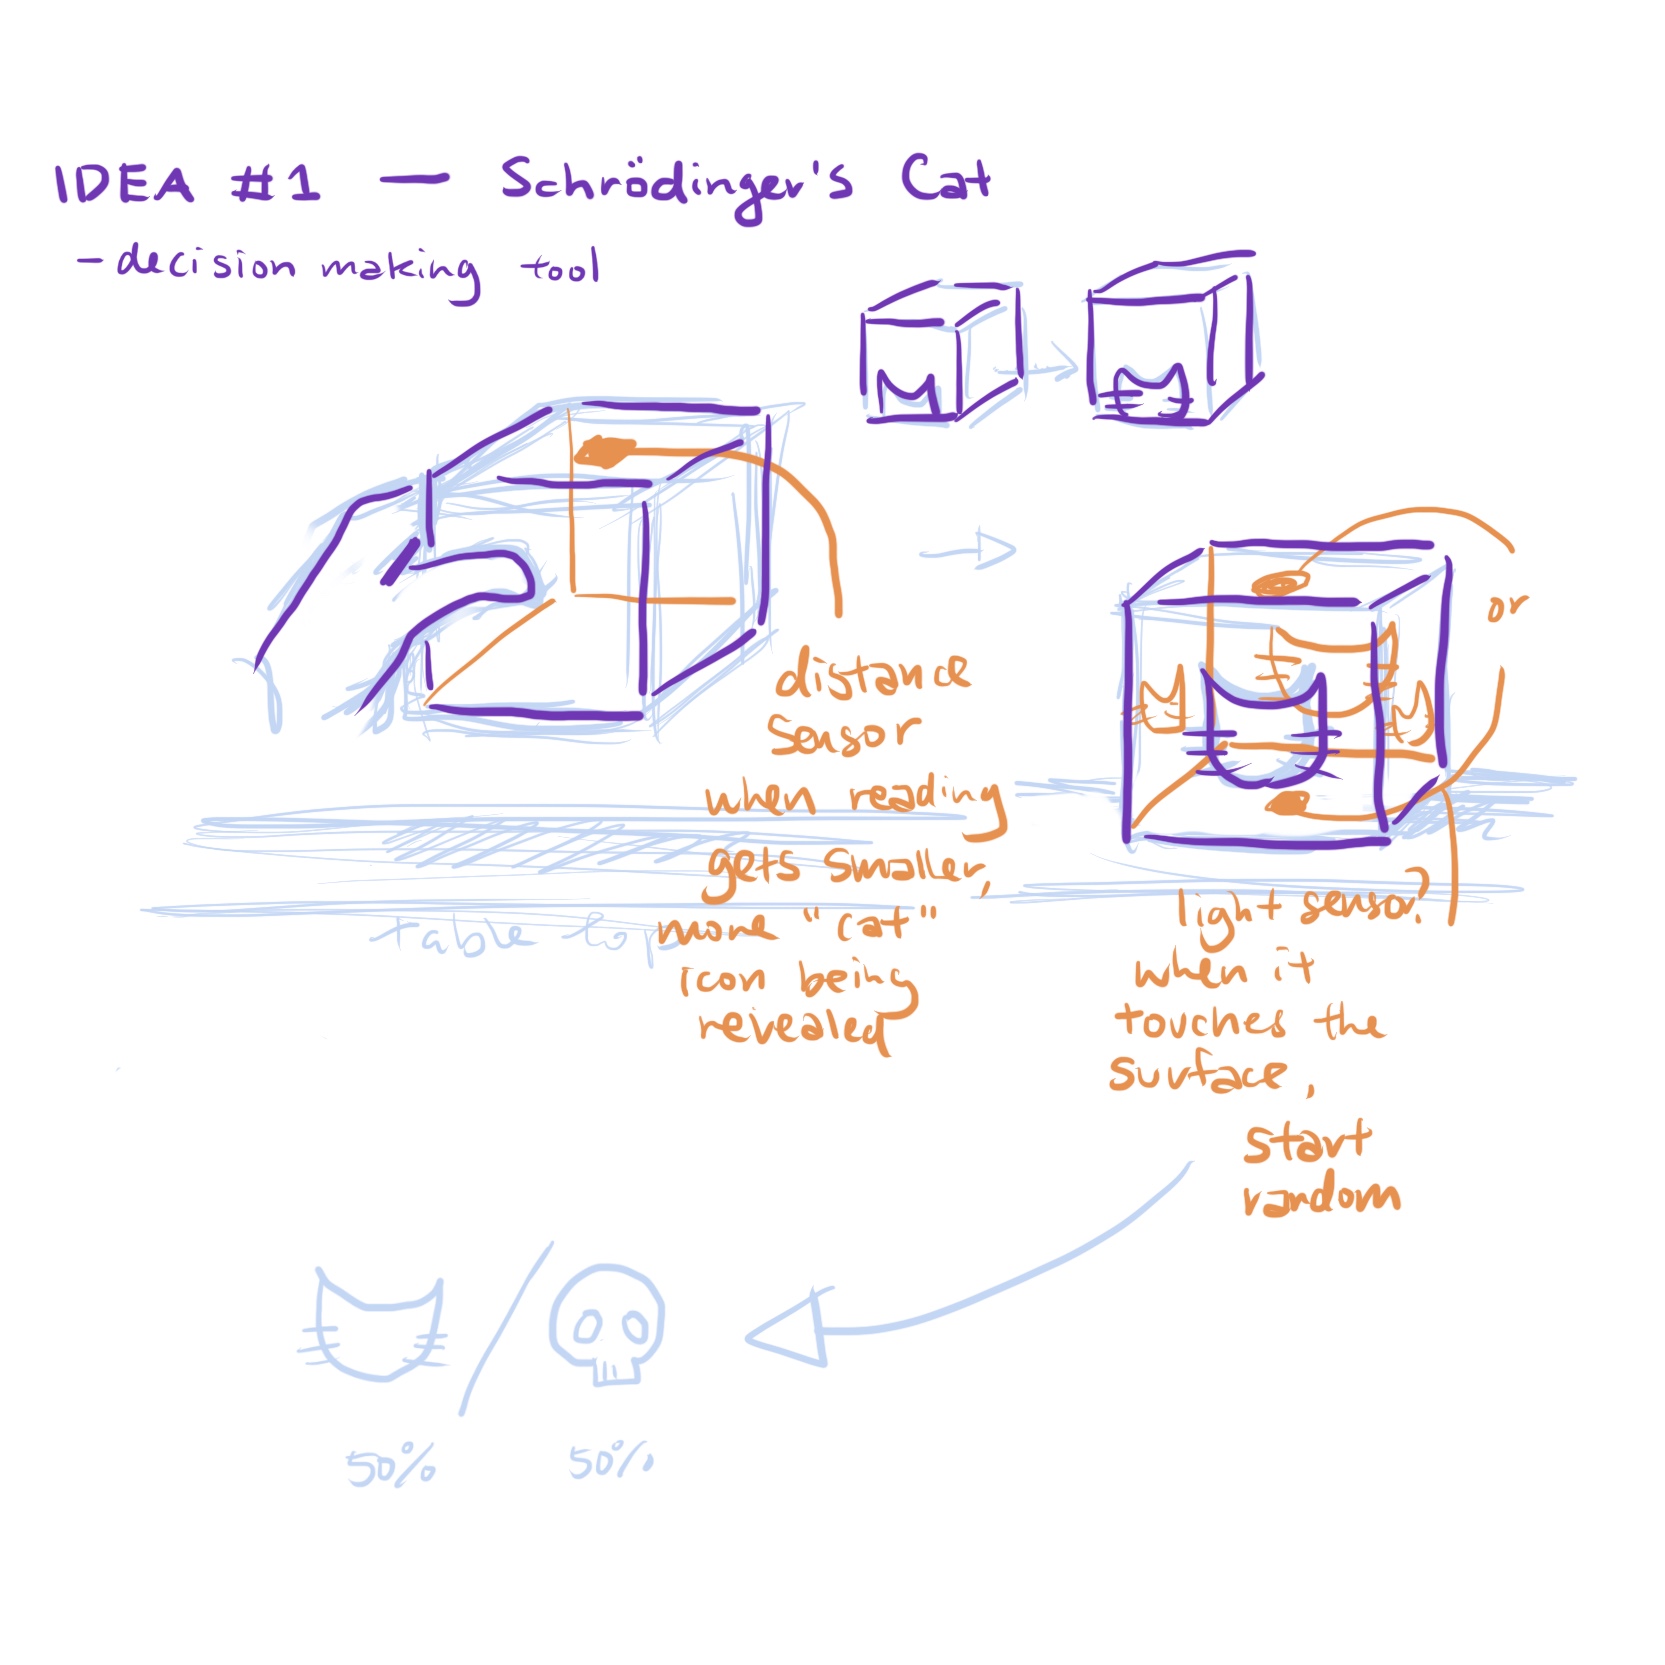 IDEA #1 — Schrödinger's Cat
- decision making tool
distance
sensor
when reading
gets smaller,
more "cat"
icon being
revealed
table top
or
light sensor?
when it
touches the
surface,
start
random
50%
50%